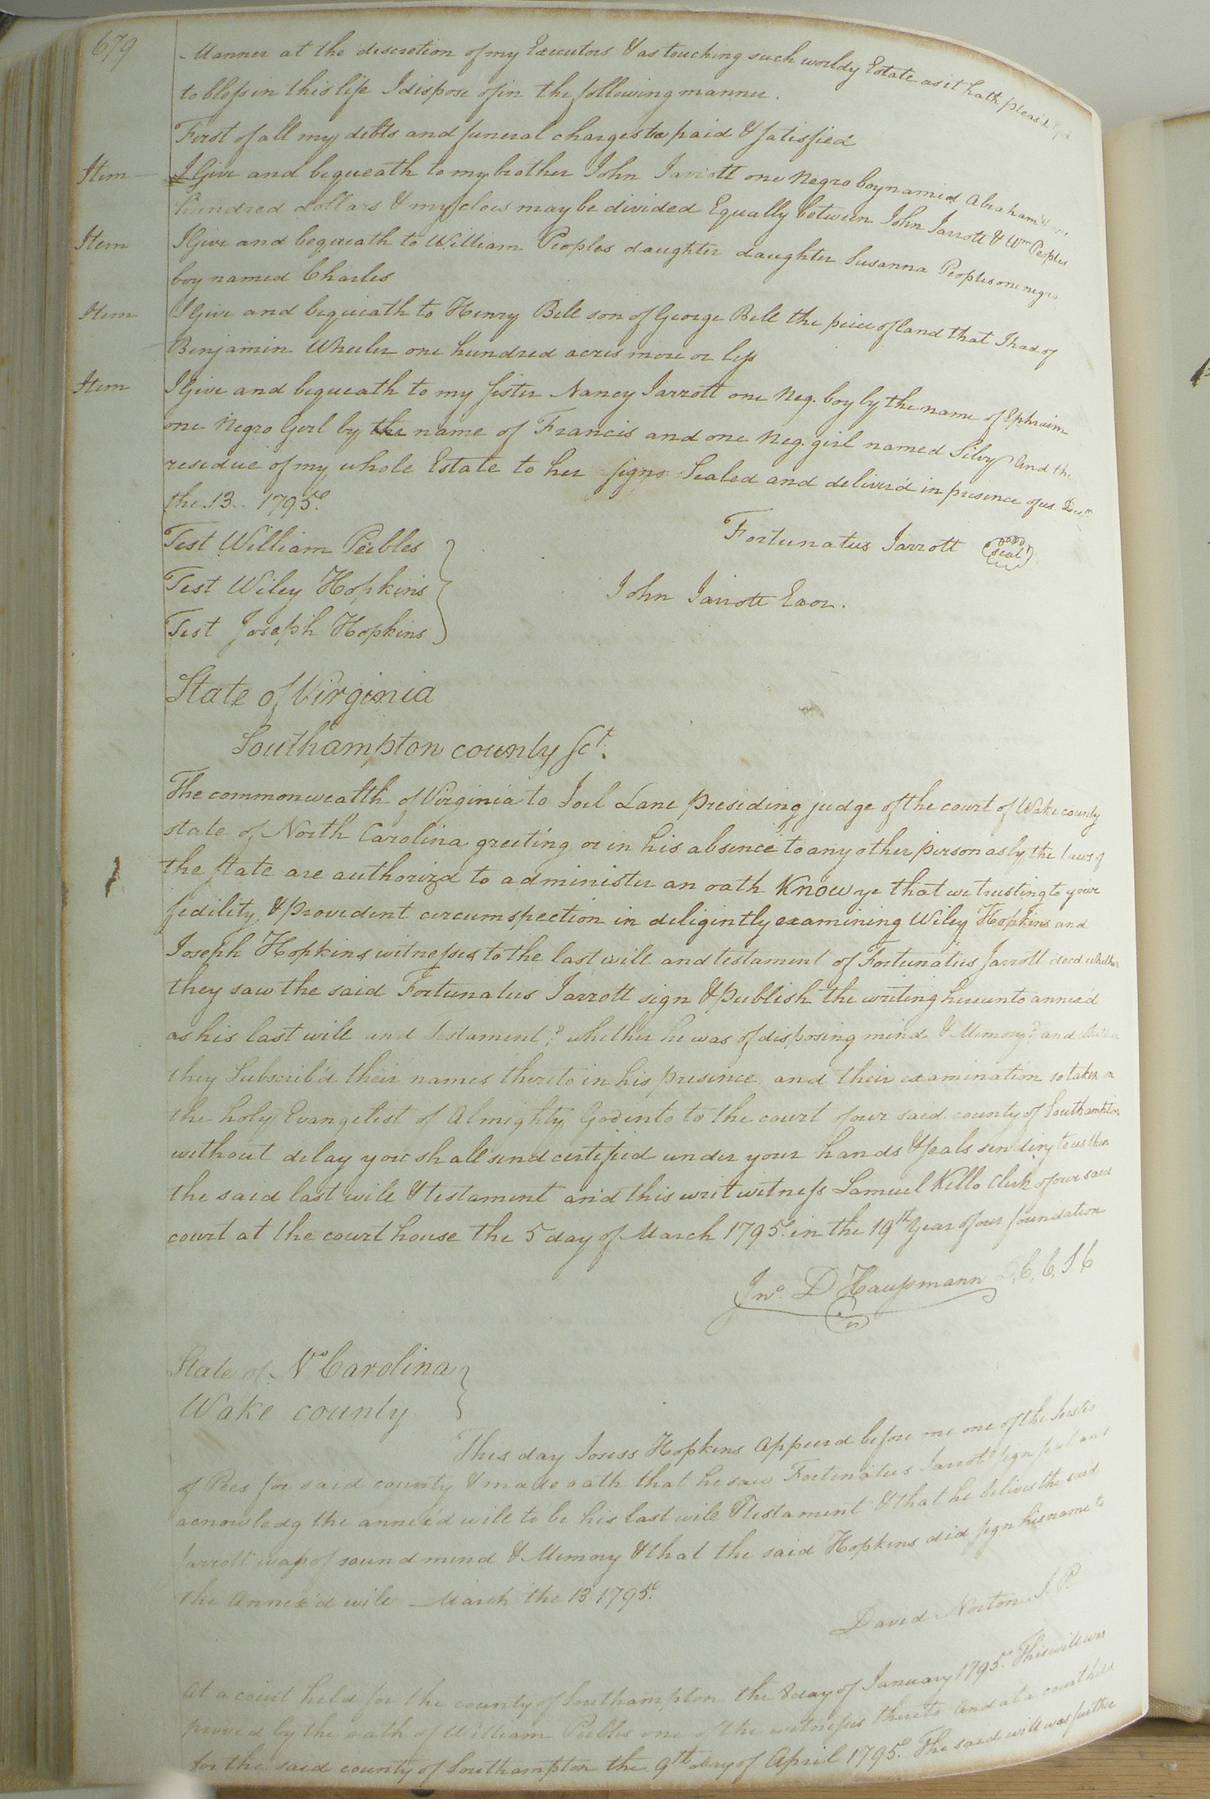 679
Manner at the descretion of my Executors & as touching such worldy Estate as it hath pleasd
to bless in this life I dispose of in the following manner.
First of all my debts and funeral charges be paid & satisfied
Item I Give and bequeath to my brother John Jarrott one Negro boy named Abraham &
hundred dollars & my cloes may be divided Equally between John Jarrott & Wm Peoples
Item I Give and bequeath to William Peoples daughter daughter Susanna Peoples one negro
boy named Charles
Item I Give and bequeath to Henry Bell son of George Bell the peice of land that I had of
Benjamin Wheeler one hundred acres more or less
Item I Give and bequeath to my sister Nancy Jarrott one Neg. boy by the name of Ephraim
one Negro Gerl by the name of Francis and one Neg. girl named Silvy And the
resedue of my whole Estate to her Signd Sealed and deliver'd in presence of us Decm
the 13.. 1795.
Test William Peebles
Fortunatus Jarrott Seal
Test Wiley Hopkins
John Jarrott Exor.
Test Joseph Hopkins
State of Virginia
Southampton county Sct.
The commonwealth of Virginia to Joel Lane Presiding judge of the court of Wake county
state of North Carolina greeting or in his absence to any other person as by the laws of
the state are authorizd to administer an oath Know ye that we trusting to your
fidelity, & Provedent circumspection in deligintly examining Wiley Hopkins and
Joseph Hopkins witnesses to the last will and testament of Fortunatus Jarrott decd whether
they saw the said Fortunatus Jarrott sign & Publish the writing hereunto annex'd
as his last will and Testament? whether he was of disposing mind & Memory? and whether
they Subscrib'd their names thereto in his presence, and their examination so taken on
the holy Evangelist of Almighty God into to the court of our said county of Southampton
without delay you shall send certified under your hands & seals sending to us then
the said last will & testament and this writ witness Samuel Kello Clerk of our said
court at the court house the 5 day of March 1795. in the 19th Year of our foundation
Jno. D Haussmann D, C, C, S C
State of No Carolina
Wake county
This day Joseph Hopkins Appeerd before me one of the Justes
of Pees for said county & made oath that he saw Fortunatus Jarrott sign seal and
acnowledg the annex'd will to be his last will & testament & that he belives the said
Jarrott was of sound mind & Memory & that the said Hopkins did sign his name to
the Annex'd will March the 13 1795.
David Norton J. P.
At a court held for the county of Southampton the 8 day of January 1795. This will was
proved by the oath of William Peebles one of the witnesses thereto And at a court held
for the said county of Southampton the 9th day of April 1795. The said will was further